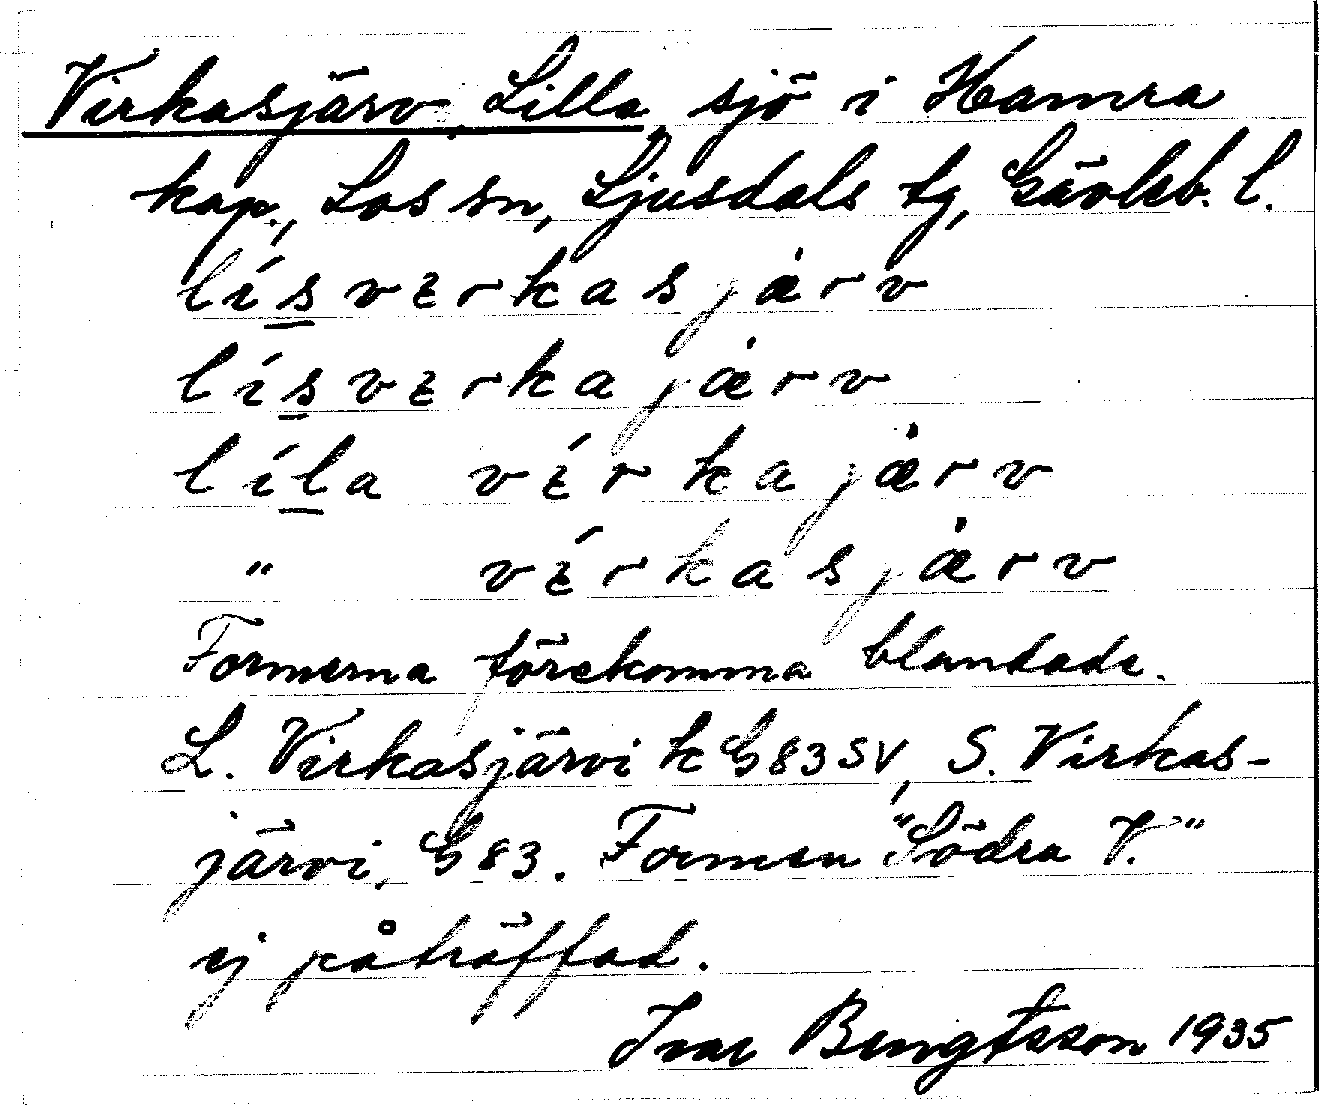 Virkasjärv, Lilla, sjö i Hamra
kap., Los sn, Ljusdals tg, Gävleb. l.
lísvɛrkasjärv
lísvɛrkajärv
líla vɛ́rkajärv
" vɛ́rkasjärv
Formerna förekomma blandade.
L. Virkasjärvi k G83SV, S. Virkas-
järvi, G83. Formen "Södra V."
ej påträffad.
Ivar Bengtsson 1935